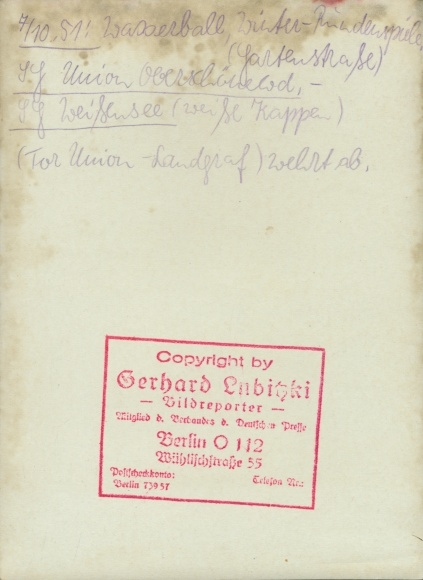 7/10.51: Wasserball Winter-Rundenspiele
(Gartenstraße)
SG Union Oberschöneweide,-
SG Weißensee (weiße Kappen)
(Tor Union Landgraf) wehrt ab.
Copyright by
Gerhard Lubitzki
— Bildreporter —
Mitglied d. Verbandes d. Deutschen Presse
Berlin O 112
Wühlischstraße 55
Postscheckkonto:
Berlin 73957
Telefon Nr.: